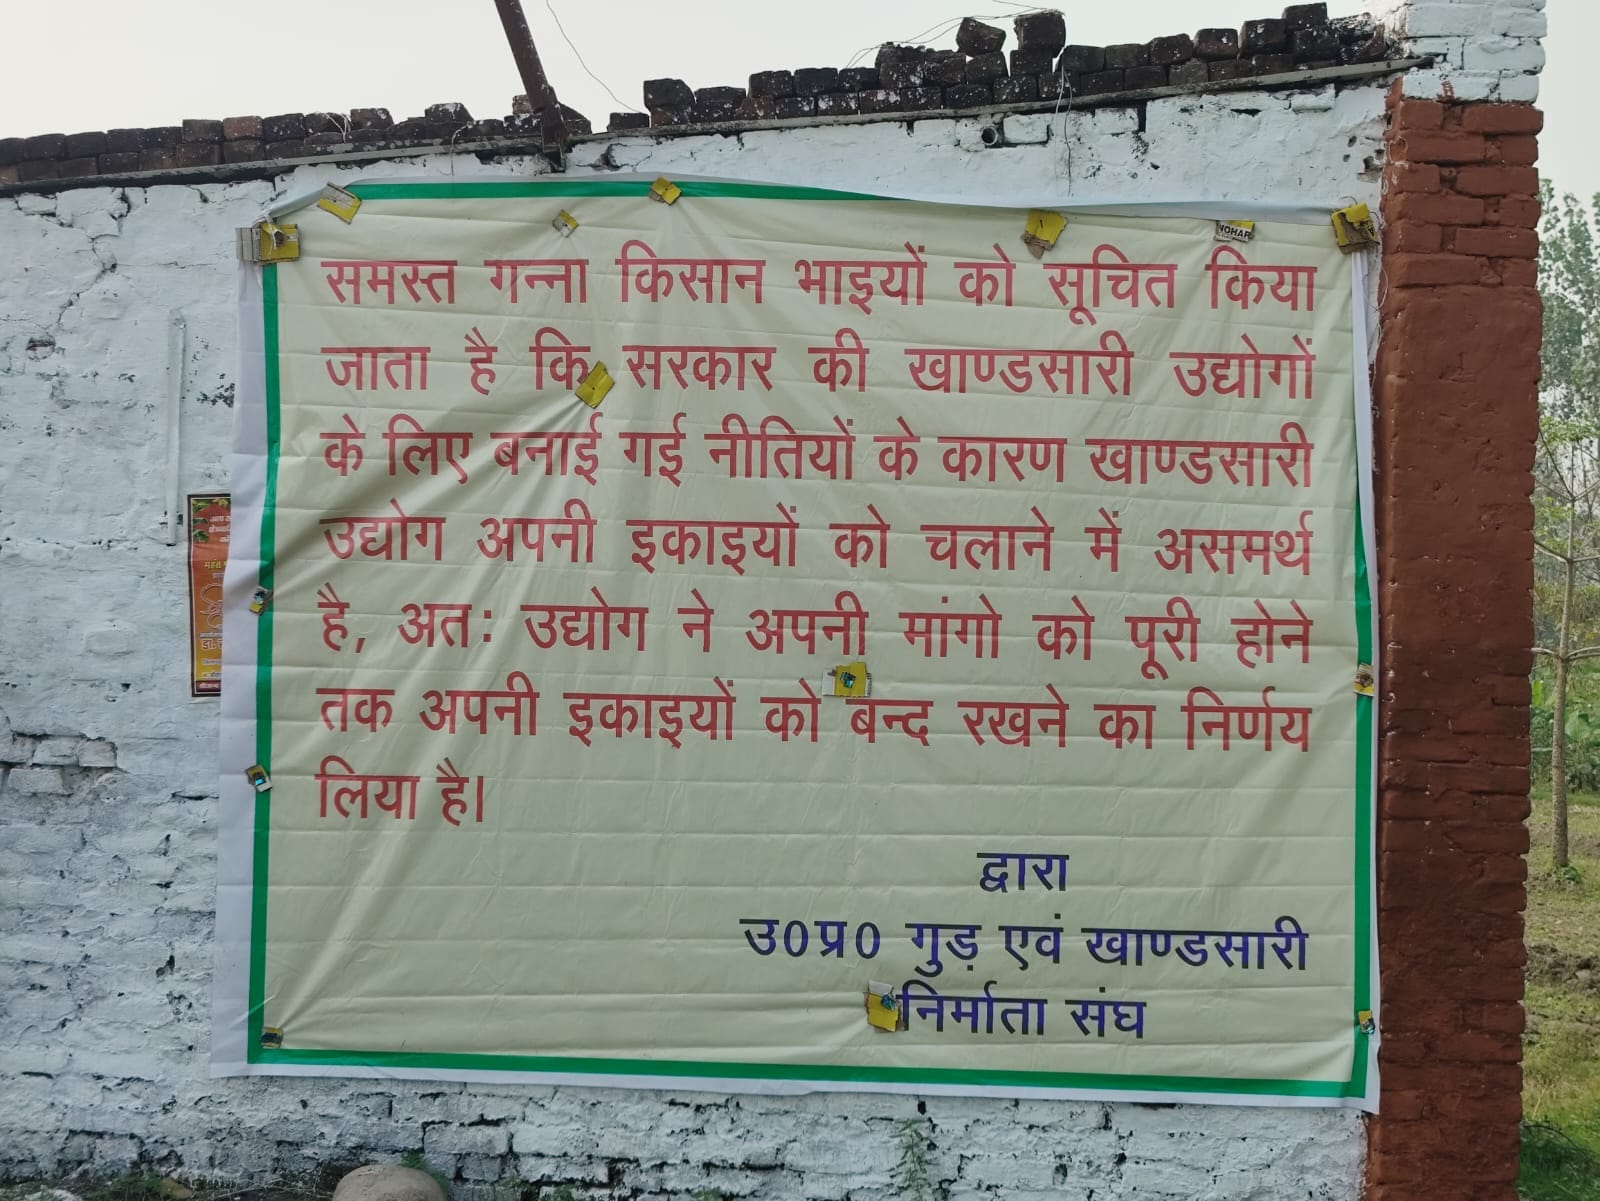 समस्त गन्ना किसान भाइयों को सूचित किया
जाता है कि सरकार की खाण्डसारी उद्योगों
के लिए बनाई गई नीतियों के कारण खाण्डसारी
उद्योग अपनी इकाइयों को चलाने में असमर्थ
है, अतः उद्योग ने अपनी मांगो को पूरी होने
तक अपनी इकाइयों को बन्द रखने का निर्णय
लिया है।
द्वारा
उ0प्र0 गुड़ एवं खाण्डसारी
निर्माता संघ